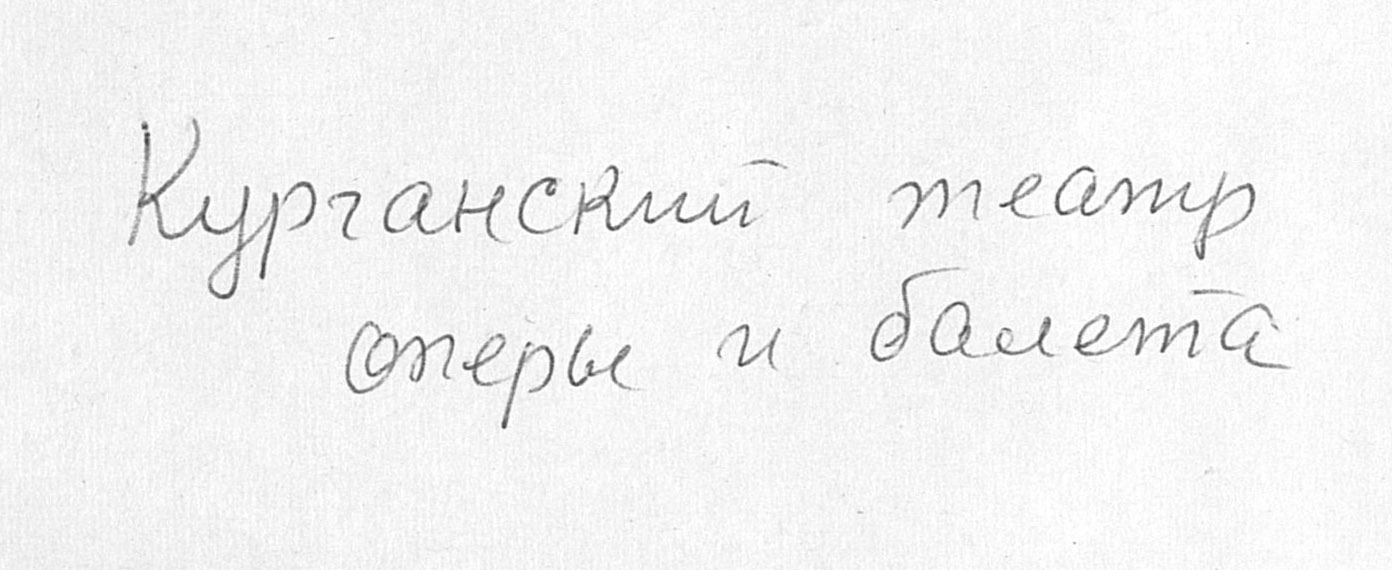 Курганский театр
оперы и балета